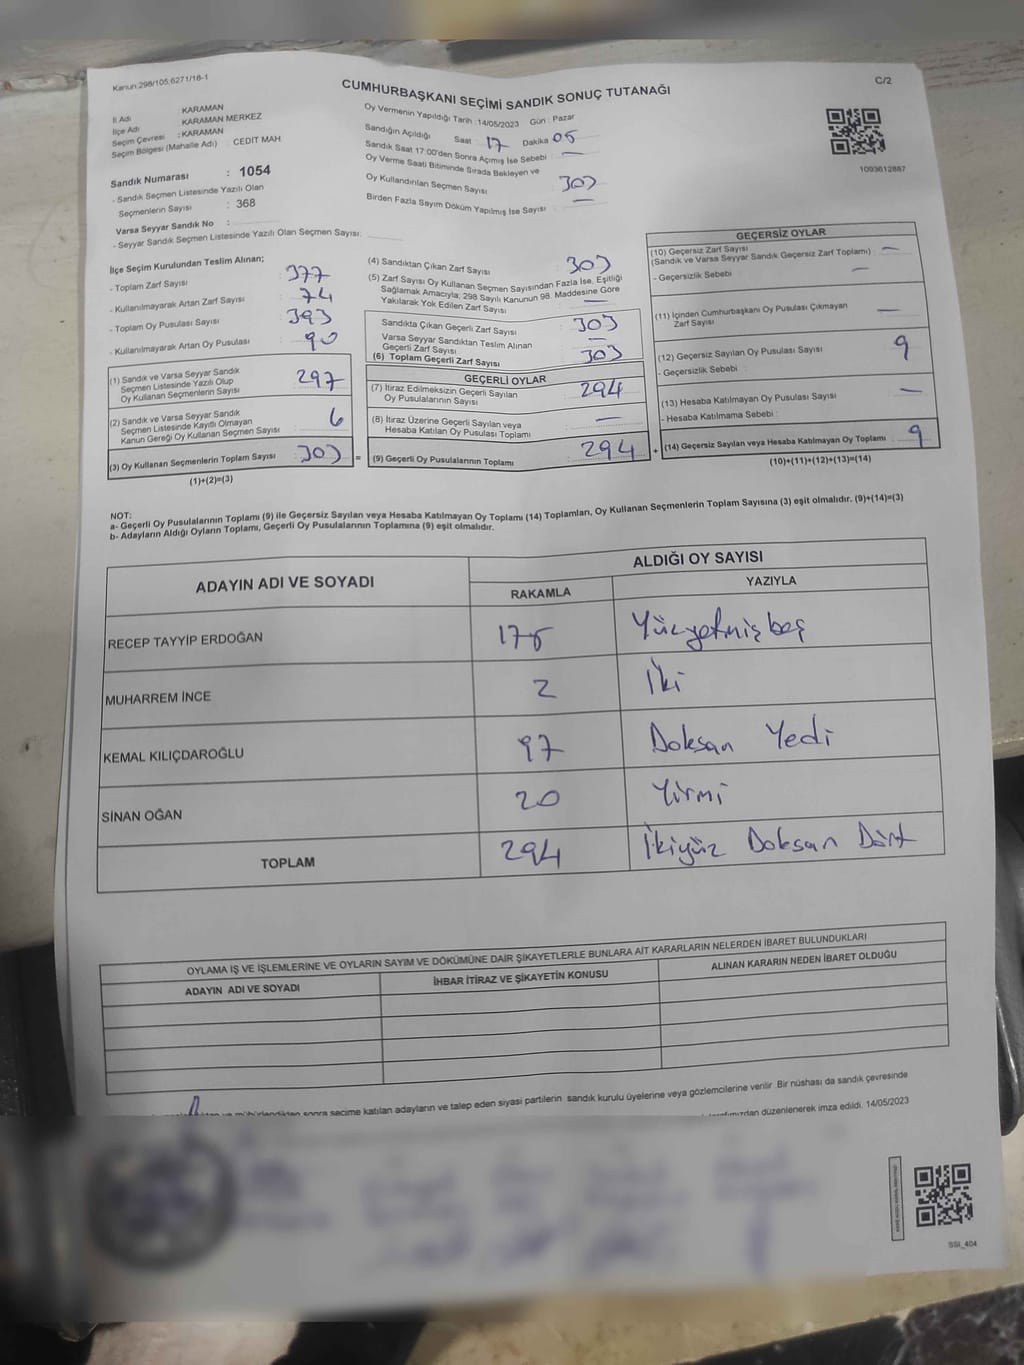 Kanun:298/105,6271/18-1
C/2
CUMHURBAŞKANI SEÇİMİ SANDIK SONUÇ TUTANAĞI
İl Adı : KARAMAN
İlçe Adı : KARAMAN MERKEZ
Seçim Çevresi : KARAMAN
Seçim Bölgesi (Mahalle Adı) : CEDİT MAH
Sandık Numarası : 1054
- Sandık Seçmen Listesinde Yazılı Olan
Seçmenlerin Sayısı : 368
Varsa Seyyar Sandık No :
- Seyyar Sandık Seçmen Listesinde Yazılı Olan Seçmen Sayısı:
Oy Vermenin Yapıldığı Tarih : 14/05/2023 Gün : Pazar
Sandığın Açıldığı Saat : 17 Dakika 05
Sandık Saat 17:00'den Sonra Açımış İse Sebebi : —
Oy Verme Saati Bitiminde Sırada Bekleyen ve
Oy Kullandırılan Seçmen Sayısı 303
Birden Fazla Sayım Döküm Yapılmış İse Sayısı : —
1093612887
İlçe Seçim Kurulundan Teslim Alınan;
- Toplam Zarf Sayısı : 377
- Kullanılmayarak Artan Zarf Sayısı : 74
- Toplam Oy Pusulası Sayısı : 393
- Kullanılmayarak Artan Oy Pusulası : 90
(1) Sandık ve Varsa Seyyar Sandık
Seçmen Listesinde Yazılı Olup
Oy Kullanan Seçmenlerin Sayısı : 297
(2) Sandık ve Varsa Seyyar Sandık
Seçmen Listesinde Kayıtlı Olmayan
Kanun Gereği Oy Kullanan Seçmen Sayısı : 6
(3) Oy Kullanan Seçmenlerin Toplam Sayısı : 303 =
(1)+(2)=(3)
(4) Sandıktan Çıkan Zarf Sayısı : 303
(5) Zarf Sayısı Oy Kullanan Seçmen Sayısından Fazla İse, Eşitliği
Sağlamak Amacıyla; 298 Sayılı Kanunun 98. Maddesine Göre
Yakılarak Yok Edilen Zarf Sayısı : —
Sandıkta Çıkan Geçerli Zarf Sayısı : 303
Varsa Seyyar Sandıktan Teslim Alınan
Geçerli Zarf Sayısı : —
(6) Toplam Geçerli Zarf Sayısı : 303
GEÇERLİ OYLAR
(7) İtiraz Edilmeksizin Geçerli Sayılan
Oy Pusulalarının Sayısı : 294
(8) İtiraz Üzerine Geçerli Sayılan veya
Hesaba Katılan Oy Pusulası Toplamı : —
(9) Geçerli Oy Pusulalarının Toplamı : 294 +
GEÇERSİZ OYLAR
(10) Geçersiz Zarf Sayısı
(Sandık ve Varsa Seyyar Sandık Geçersiz Zarf Toplamı) : —
- Geçersizlik Sebebi : —
(11) İçinden Cumhurbaşkanı Oy Pusulası Çıkmayan
Zarf Sayısı : —
(12) Geçersiz Sayılan Oy Pusulası Sayısı : 9
- Geçersizlik Sebebi :
(13) Hesaba Katılmayan Oy Pusulası Sayısı : —
- Hesaba Katılmama Sebebi :
(14) Geçersiz Sayılan veya Hesaba Katılmayan Oy Toplamı : 9
(10)+(11)+(12)+(13)=(14)
NOT:
a- Geçerli Oy Pusulalarının Toplamı (9) ile Geçersiz Sayılan veya Hesaba Katılmayan Oy Toplamı (14) Toplamları, Oy Kullanan Seçmenlerin Toplam Sayısına (3) eşit olmalıdır. (9)+(14)=(3)
b- Adayların Aldığı Oyların Toplamı, Geçerli Oy Pusulalarının Toplamına (9) eşit olmalıdır.
ADAYIN ADI VE SOYADI ALDIĞI OY SAYISI
RAKAMLA YAZIYLA
RECEP TAYYİP ERDOĞAN 175 Yüzyetmişbeş
MUHARREM İNCE 2 İki
KEMAL KILIÇDAROĞLU 97 Doksan Yedi
SİNAN OĞAN 20 Yirmi
TOPLAM 294 İkiyüz Doksan Dört
OYLAMA İŞ VE İŞLEMLERİNE VE OYLARIN SAYIM VE DÖKÜMÜNE DAİR ŞİKAYETLERLE BUNLARA AİT KARARLARIN NELERDEN İBARET BULUNDUKLARI
ADAYIN ADI VE SOYADI İHBAR İTİRAZ VE ŞİKAYETİN KONUSU ALINAN KARARIN NEDEN İBARET OLDUĞU
ve mühürlendikten sonra seçime katılan adayların ve talep eden siyasi partilerin sandık kurulu üyelerine veya gözlemcilerine verilir. Bir nüshası da sandık çevresinde
düzenlenerek imza edildi. 14/05/2023
SSI_404